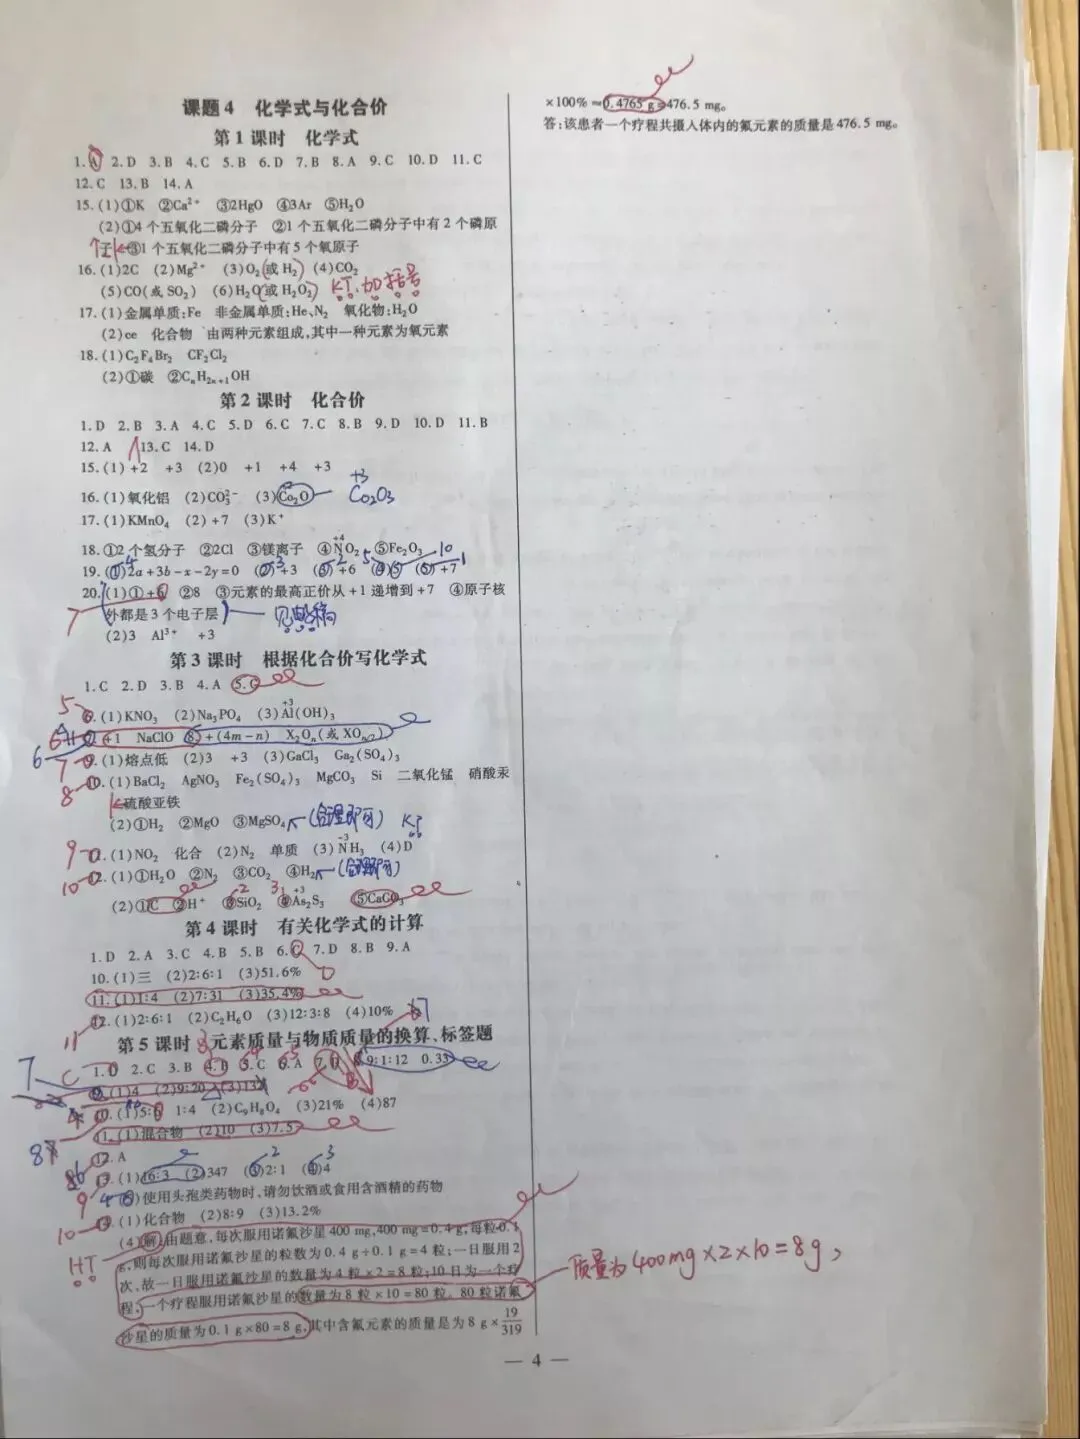 课题4 化学式与化合价
第1课时 化学式
1.A 2.D 3.B 4.C 5.B 6.D 7.B 8.A 9.C 10.D 11.C
12.C 13.B 14.A
15.(1)①K ②Ca²⁺ ③2HgO ④3Ar ⑤H₂O
(2)①4个五氧化二磷分子 ②1个五氧化二磷分子中有2个磷原
子 ③1个五氧化二磷分子中有5个氧原子
16.(1)2C (2)Mg²⁺ (3)O₂(或H₂) (4)CO₂
(5)CO(或SO₂) (6)H₂O(或H₂O₂) KT:加括号
17.(1)金属单质:Fe 非金属单质:He、N₂ 氧化物:H₂O
(2)ce 化合物 由两种元素组成,其中一种元素为氧元素
18.(1)C₂F₄Br₂ CF₂Cl₂
(2)①碳 ②CₙH₂ₙ₊₁OH
第2课时 化合价
1.D 2.B 3.A 4.C 5.D 6.C 7.C 8.B 9.D 10.D 11.B
12.A 13.C 14.D
15.(1)+2 +3 (2)0 +1 +4 +3
16.(1)氧化铝 (2)CO₃²⁻ (3)Co₂O +3 Co₂O₃
17.(1)KMnO₄ (2)+7 (3)K⁺
18.①2个氢分子 ②2Cl ③镁离子 ④+4 NO₂ ⑤Fe₂O₃
19. 2a+3b-x-2y=0 +3 +6 +7
20.(1)①+6 ②8 ③元素的最高正价从+1递增到+7 ④原子核
7 外都是3个电子层
(2)3 Al³⁺ +3
第3课时 根据化合价写化学式
1.C 2.D 3.B 4.A 5.C
5 6.(1)KNO₃ (2)Na₃PO₄ (3)+3 Al(OH)₃
6 +1 NaClO 8.+(4m-n) X₂Oₙ(或XOn/2)
7 9.(1)熔点低 (2)3 +3 (3)GaCl₃ Ga₂(SO₄)₃
8 10.(1)BaCl₂ AgNO₃ Fe₂(SO₄)₃ MgCO₃ Si 二氧化锰 硝酸汞
硫酸亚铁
(2)①H₂ ②MgO ③MgSO₄ (合理即可) KT
9 11.(1)NO₂ 化合 (2)N₂ 单质 (3)-3 NH₃ (4)D
10 12.(1)①H₂O ②N₂ ③CO₂ ④H₂ (合理即可)
(2)①C ②H⁺ ③SiO₂ ④+3 As₂S₃ ⑤CaCO₃
第4课时 有关化学式的计算
1.D 2.A 3.C 4.B 5.B 6.C 7.D 8.B 9.A
10.(1)三 (2)2:6:1 (3)51.6% D
11.(1)1:4 (2)7:31 (3)35.4%
11 12.(1)2:6:1 (2)C₂H₆O (3)12:3:8 (4)10%
第5课时 元素质量与物质质量的换算、标签题
1.D 2.C 3.B 4.B 5.C 6.A 7. 9:1:12 0.33
9.(1)4 (2)9:20 (3)132
10.(1)5:6 1:4 (2)C₉H₈O₄ (3)21% (4)87
11.(1)混合物 (2)10 (3)7.5
12.A
13.(1)16:3 (2)347 (3)2:1 (4)4
使用头孢类药物时,请勿饮酒或食用含酒精的药物
10 14.(1)化合物 (2)8:9 (3)13.2%
(4)解:由题意,每次服用诺氟沙星400 mg,400 mg=0.4 g,每粒0.1
HT g,则每次服用诺氟沙星的粒数为0.4 g÷0.1 g=4粒;一日服用2
次,故一日服用诺氟沙星的数量为4粒×2=8粒;10日为一个疗
程,一个疗程服用诺氟沙星的数量为8粒×10=80粒。80粒诺氟
沙星的质量为0.1 g×80=8 g,其中含氟元素的质量是为8 g×19/319
— 4 —
×100%≈0.4765 g=476.5 mg。
答:该患者一个疗程共摄入体内的氟元素的质量是476.5 mg。
质量为400mg×2×10=8g,